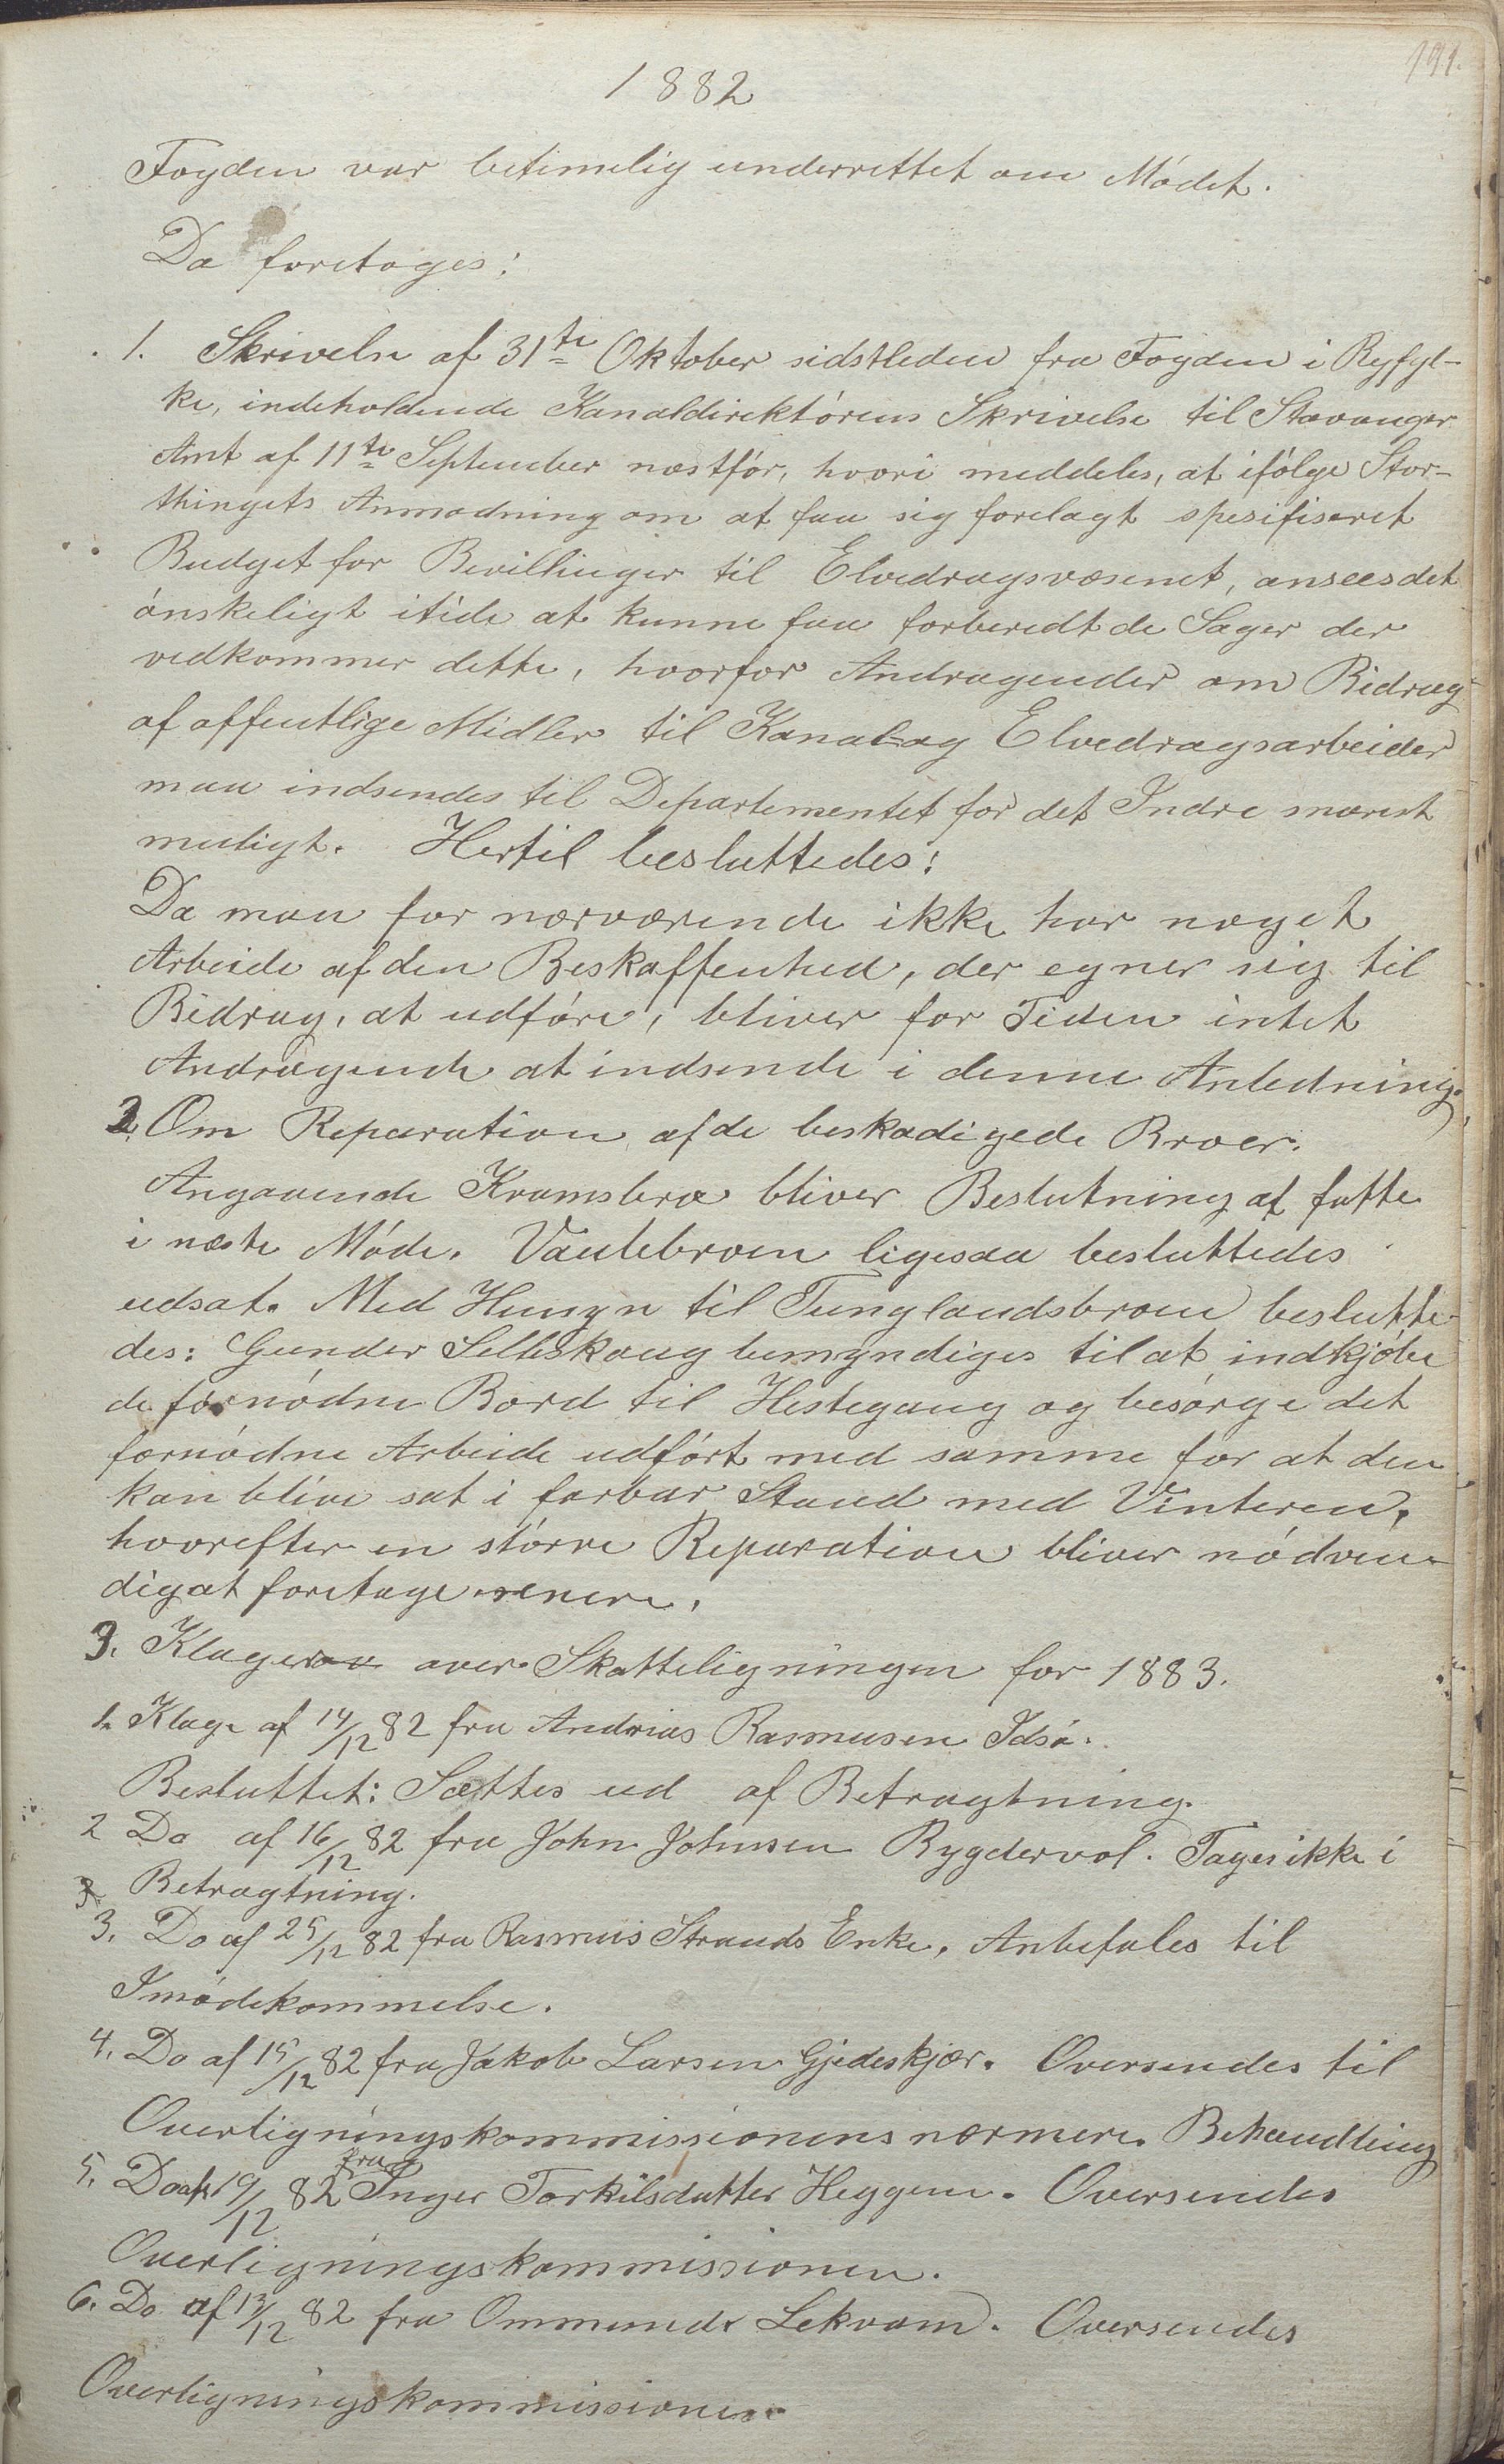 191.
1882
Fogden var betimelig underrettet om Mødet.
Da foretoges:
1. Skrivelse af 31te Oktober sidstleden fra Fogden i Ryfyl-
ke, indeholdende Kanaldirektørens Skrivelse til Stavanger
Amt af 11te September næstfør, hvori meddeles, at ifølge Stor-
thingets Anmodning om at faa sig forelagt spesifiseret
Budget for Bevillinger til Elvedragsvæsenet, ansees det
ønskeligt itide at kunne faa forberedt de Sager der
vedkommer dette, hvorfor Andragender om Bidrag
af offentlige Midler til Kanal og Elvedragsarbeider
maa indsendes til Departementet for det Indre snarest
muligt. Hertil besluttedes:
Da man for nærværende ikke har noget
Arbeide af den Beskaffenhed, der egner sig til
Bidrag, at udføre, bliver for Tiden intet
Andragende at indsende i denne Anledning.
2. Om Reparation af de beskadigede Broer.
Angaaende Kramsbro bliver Beslutning at fatte
i næste Møde. Vaulebroen ligesaa besluttedes
udsat. Med Hensyn til Tunglandsbroen beslutte-
des: Gunder Selleskoug bemyndiges til at indkjøbe
de fornødne Bord til Hestegang og besørge det
fornødne Arbeide udført med samme for at den
kan blive sat i farbar Stand med Vinteren,
hvorefter en større Reparation bliver nødven-
dig at foretage senere.
3. Klager over Skatteligningen for 1883.
1. Klage af 14/12 82 fra Andreas Rasmusen Idsø.
Besluttet: Sættes ud af Betragtning.
2 Do af 16/12 82 fra John Johnsen Bygdevol. Tages ikke i
Betragtning.
3. Do af 25/12 82 fra Rasmus Strands Enke, Anbefales til
Imødekommelse.
4. Do af 15/12 82 fra Jakob Larsen Gjedeskjær. Oversendes til
Overligningskommissionens nærmere Behandling
5. Do af 19/12 82 fra Inger Torkilsdatter Heggem. Oversendes
Overligningskommissionen.
6. Do af 13/12 82 fra Ommund Lekvam. Oversendes
Overligningskommissionen.